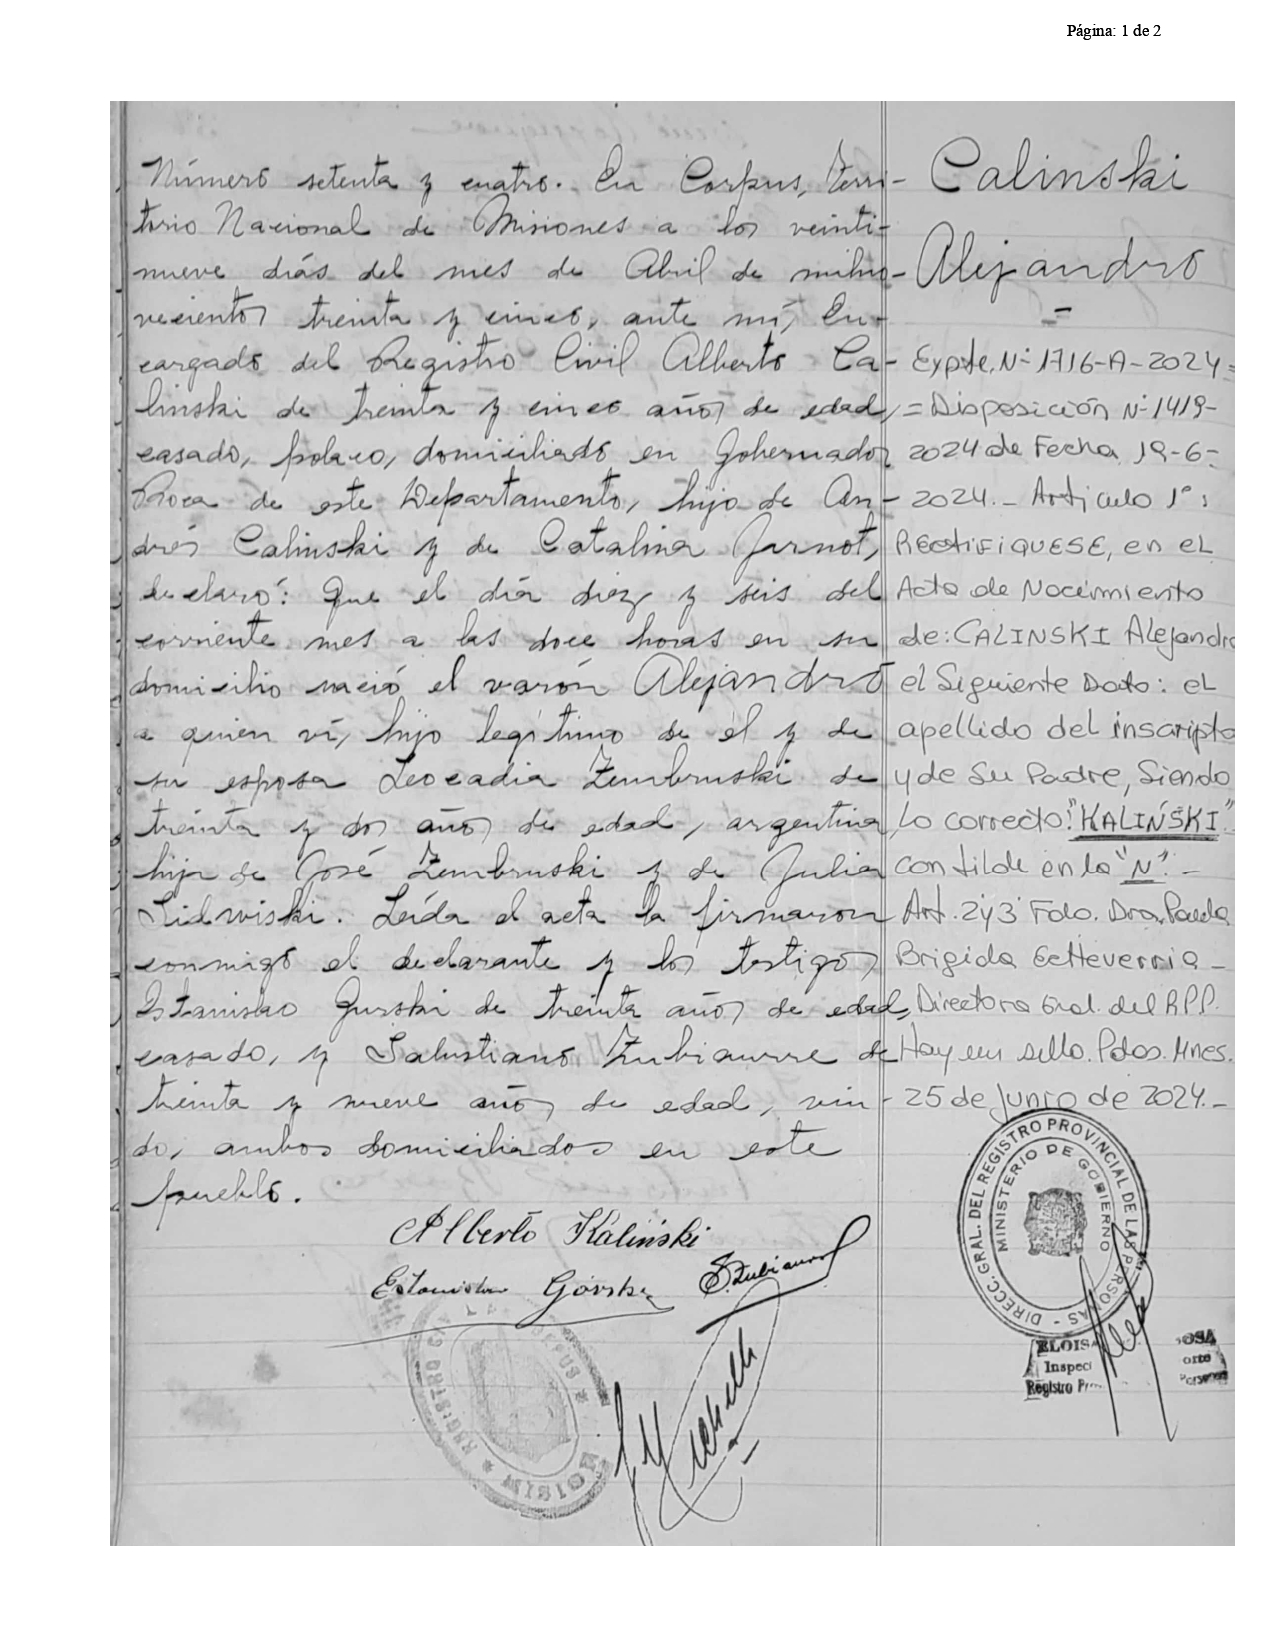 Página: 1 de 2
Número setenta y cuatro. En Corpus, Terri-
torio Nacional de Misiones a los veinti-
nueve diás del mes de Abril de milno-
vecientos treinta y cinco, ante mí, En-
cargado del Registro Civil Alberto Ca-
linski de treinta y cinco años de edad,
casado, polaco, domiciliado en Gobernador
Roca de este Departamento, hijo de An-
drés Calinski y de Catalina Jarnot,
declaró: Que el día diez y seis del
corriente mes a las doce horas en su
domicilio nació el varón Alejandro
a quien ví, hijo legítimo de él y de
su esposa Leocadia Zembruski de
treinta y dos años de edad, argentina,
hija de José Zembruski y de Julia
Sidwiski. Leída el acta la firmaron
conmigo el declarante y los testigos
Estanislao Gurski de treinta años de edad,
casado, y Salustiano Zubiaurre de
treinta y nueve años de edad, viu-
do, ambos domiciliados en este
pueblo.
Alberto Kaliński
Estanislao Górski
S. Zubiaurre
Calinski
Alejandro
Expte. N° 1716-A-2024=
=Disposición N° 1419-
2024 de Fecha 19-6-
2024.- Articulo 1°:
RECTIFIQUESE, en el
Acta de Nacimiento
de: CALINSKI Alejandro
el Siguiente Dato: el
apellido del inscripto
y de Su Padre, Siendo
lo correcto: "KALIŃSKI"
con tilde en la "N".-
Art. 2 y 3 Fdo. Dra. Paula
Brigida Etteverria -
Directora Gral. del RPP.
Hay un sello. Pdas. Mnes.
25 de Junio de 2024.-
DIRECC. GRAL. DEL REGISTRO PROVINCIAL DE LAS PERSONAS -
MINISTERIO DE GOBIERNO
ELOISA
Inspec
Registro
REGISTRO
CORPUS